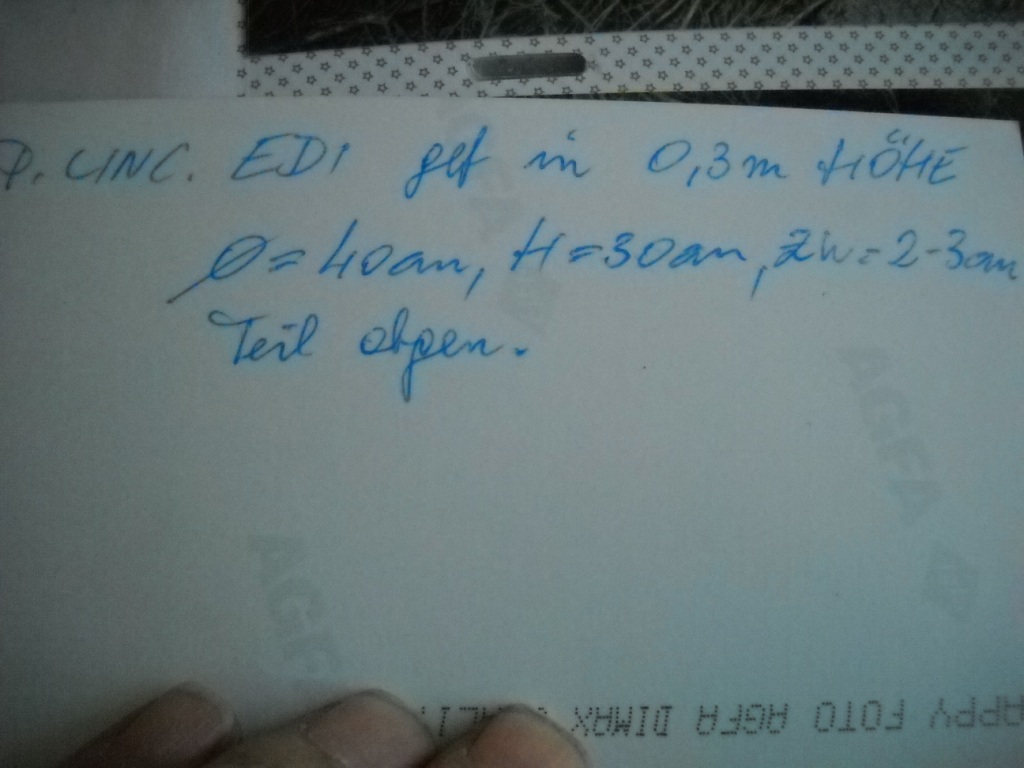 P. UNC. EDI gef in 0,3m HÖHE
Ø = 40cm, H = 30cm, ZW = 2-3cm
Teil abgen.
AGFA
AGFA
AGFA
APPY FOTO AGFA DIMAX